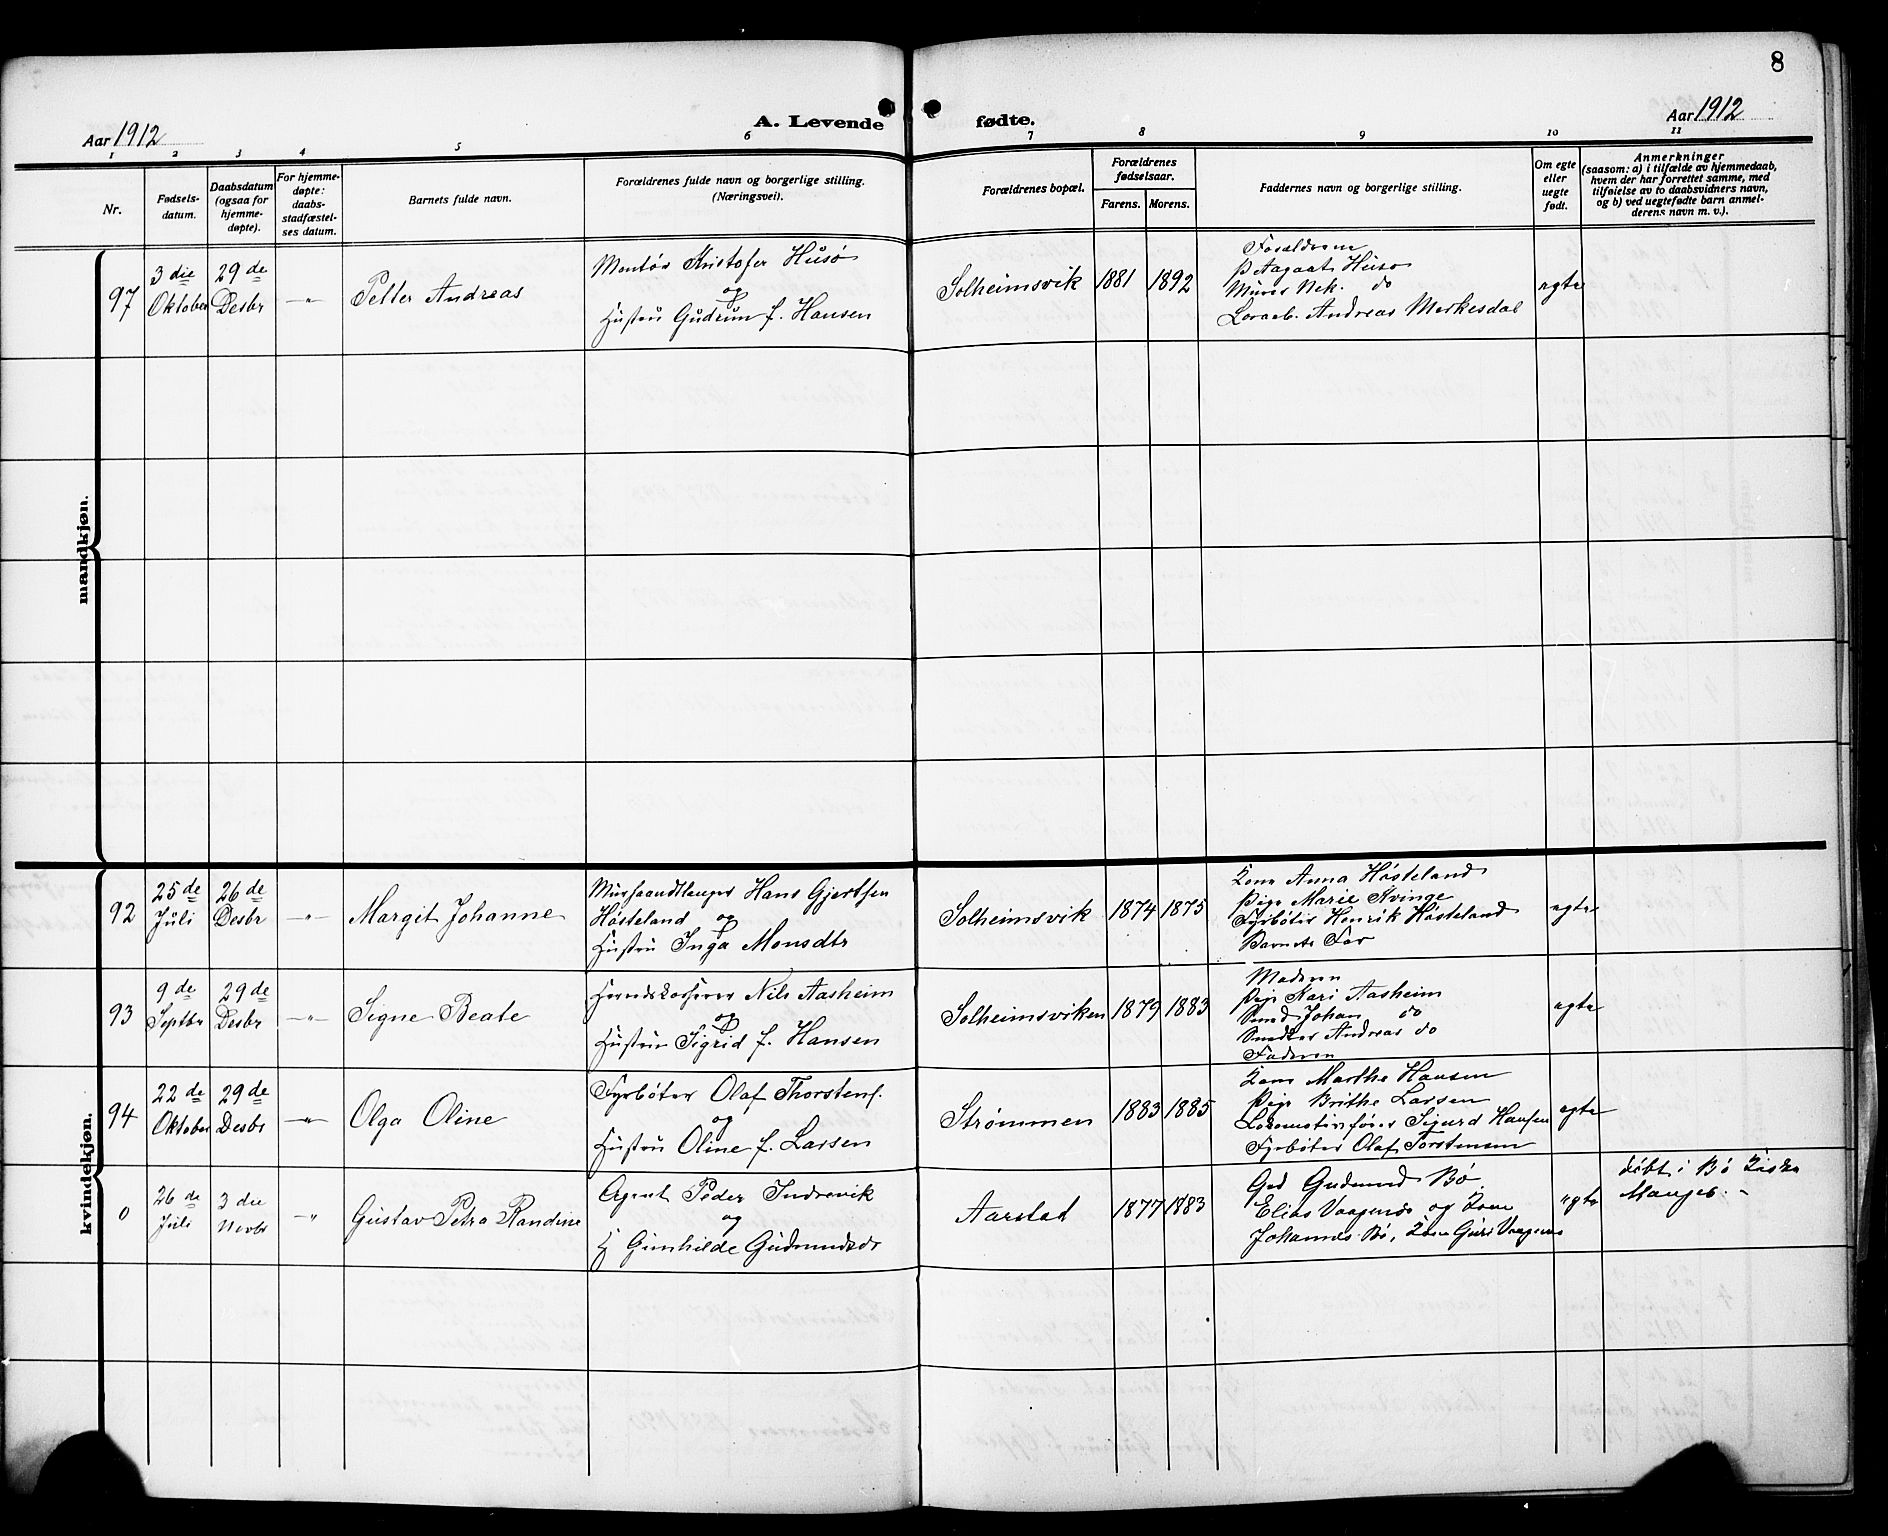 8
Aar 1912
A. Levende fødte.
Aar 1912
1 2 3 4 5 6 7 8 9 10 11
Nr.
Fødsels-
datum.
Daabsdatum
(ogsaa for
hjemme-
døpte).
For hjemme-
døpte:
daabs-
stadfæstel-
ses datum.
Barnets fulde navn.
Forældrenes fulde navn og borgerlige stilling.
(Næringsvei).
Forældrenes bopæl.
Forældrenes
fødselsaar.
Farens. Morens.
Faddernes navn og borgerlige stilling.
Om egte
eller
uegte
født.
Anmerkninger
(saasom: a) i tilfælde av hjemmedaab,
hvem der har forrettet samme, med
tilføielse av to daabsvidners navn,
og b) ved uegtefødte barn anmel-
derens navn m. v.).
mandkjøn.
97
3 die
Oktober
29 de
Desbr
-"-
Petter Andreas
Montør Kristofer Husø
og
Hustru Gudrun f. Hansen
Solheimsvik
1881
1892
Forældrene
P Aagaat Husø
Murer Nek. do
Andreas Merkesdal
egte
kvindekjøn.
92
25 de
Juli
26 de
Desbr
-"-
Margit Johanne
Murhaandtlanger Hans Gjertsen
Høsteland og
Hustru Inga Monsdtr
Solheimsvik
1874
1875
Kone Anna Høsteland
Pige Marie Kvinge
Fyrbøter Henrik Høsteland
Barnets Far
egte
93
9 de
Septbr
29 de
Desbr
-"-
Signe Beate
Nils Aasheim
og
Hustru Sigrid f. Hansen
Solheimsviken
1879
1883
Moderen
Pige Kari Aasheim
Smed Johan do
Andreas do
Faderen
egte
94
22 de
Oktober
29 de
Desbr
-"-
Olga Oline
Fyrbøter Olaf Thorstens.
og
Hustru Oline f. Larsen
Strømmen
1883
1885
Kone Marthe Hansen
Pige Brithe Larsen
Lokomotivfører Sigurd Hansen
Fyrbøter Olaf Torstensen
egte
0
26 de
Juli
3 die
Novbr
-"-
Gustav Petra Randine
Agent Peder Indrevik
og
H Gunhilde Gudmundsdr
Aarstad
1877
1883
Gbd Gudmund Bø
Elias Vaagenes og Kone
Johannes Bø, Kone Guri Vaagenes
egte
døbt i Bø Kirke
Manger.